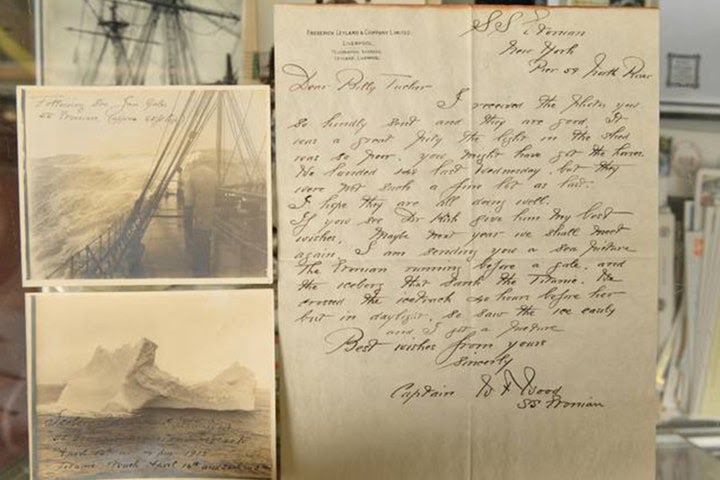 Following Sea, Gale
SS Etonian
FREDERICK LEYLAND & COMPANY LIMITED
LIVERPOOL.
TELEGRAPHIC ADDRESS,
LEYLAND, LIVERPOOL.
SS Etonian
New York
Pier 59 North River
Dear Billy Tucker
I received the photos you
so kindly sent and they are good. It
was a great pity the light in the shed
was so poor. you might have got the horses.
We landed last Wednesday, but they
were not such a fine lot as last.
I hope they are all doing well.
If you see give him my best
wishes. Maybe next year we shall meet
again. I am sending you a sea picture
The Etonian running before a gale. and
the iceberg that sank the Titanic. We
crossed the icetrack 40 hours before her
but in daylight. so saw the ice easily
and I got a picture
Best wishes from yours
Sincerely
Captain W F Wood
SS Etonian
SS Etonian
April 12th 1912
Titanic struck April 14th and